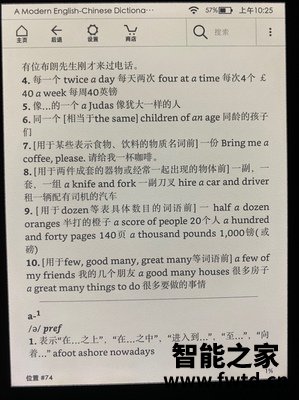 A Modern English-Chinese Dictiona...
57%
上午10:25
主页
后退
设置
商店
搜索
有位布朗先生刚才来过电话。
4. 每一个 twice a day 每天两次 four at a time 每次4个 £
40 a week 每周40英镑
5. 像…的一个 a Judas 像犹大一样的人
6. 同一个 [相当于the same] children of an age 同龄的孩子
们
7. [用于某些表示食物、饮料的物质名词前] 一份 Bring me a
coffee, please. 请给我一杯咖啡。
8. [用于两件成套的器物或经常一起出现的物体前] 一副．一
套．一组 a knife and fork 一副刀叉 hire a car and driver
租一辆配有司机的汽车
9. [用于dozen等表具体数目的词语前] 一 half a dozen
oranges 半打的橙子 a score of people 20个人 a hundred
and forty pages 140页 a thousand pounds 1,000镑(或
磅)
10. [用于few, good many, great many等词语前] a few of
my friends 我的几个朋友 a good many houses 很多房子
a great many things to do 很多要做的事情
a-¹
/ə/ pref
1. 表示“在…之上”，“在…之中”，“进入到…”，“至…”，“向
着…” afoot ashore nowadays
位置 #74
1%
智能之家
www.fwtd.cn